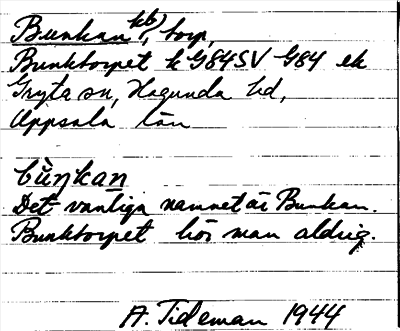 Bunkan kb), torp,
Bunktorpet k G84SV G84 ek
Gryta sn, Hagunda hd,
Uppsala län
bùŋkan
Det vanliga namnet är Bunkan.
Bunktorpet hör man aldrig.
A. Tideman 1944